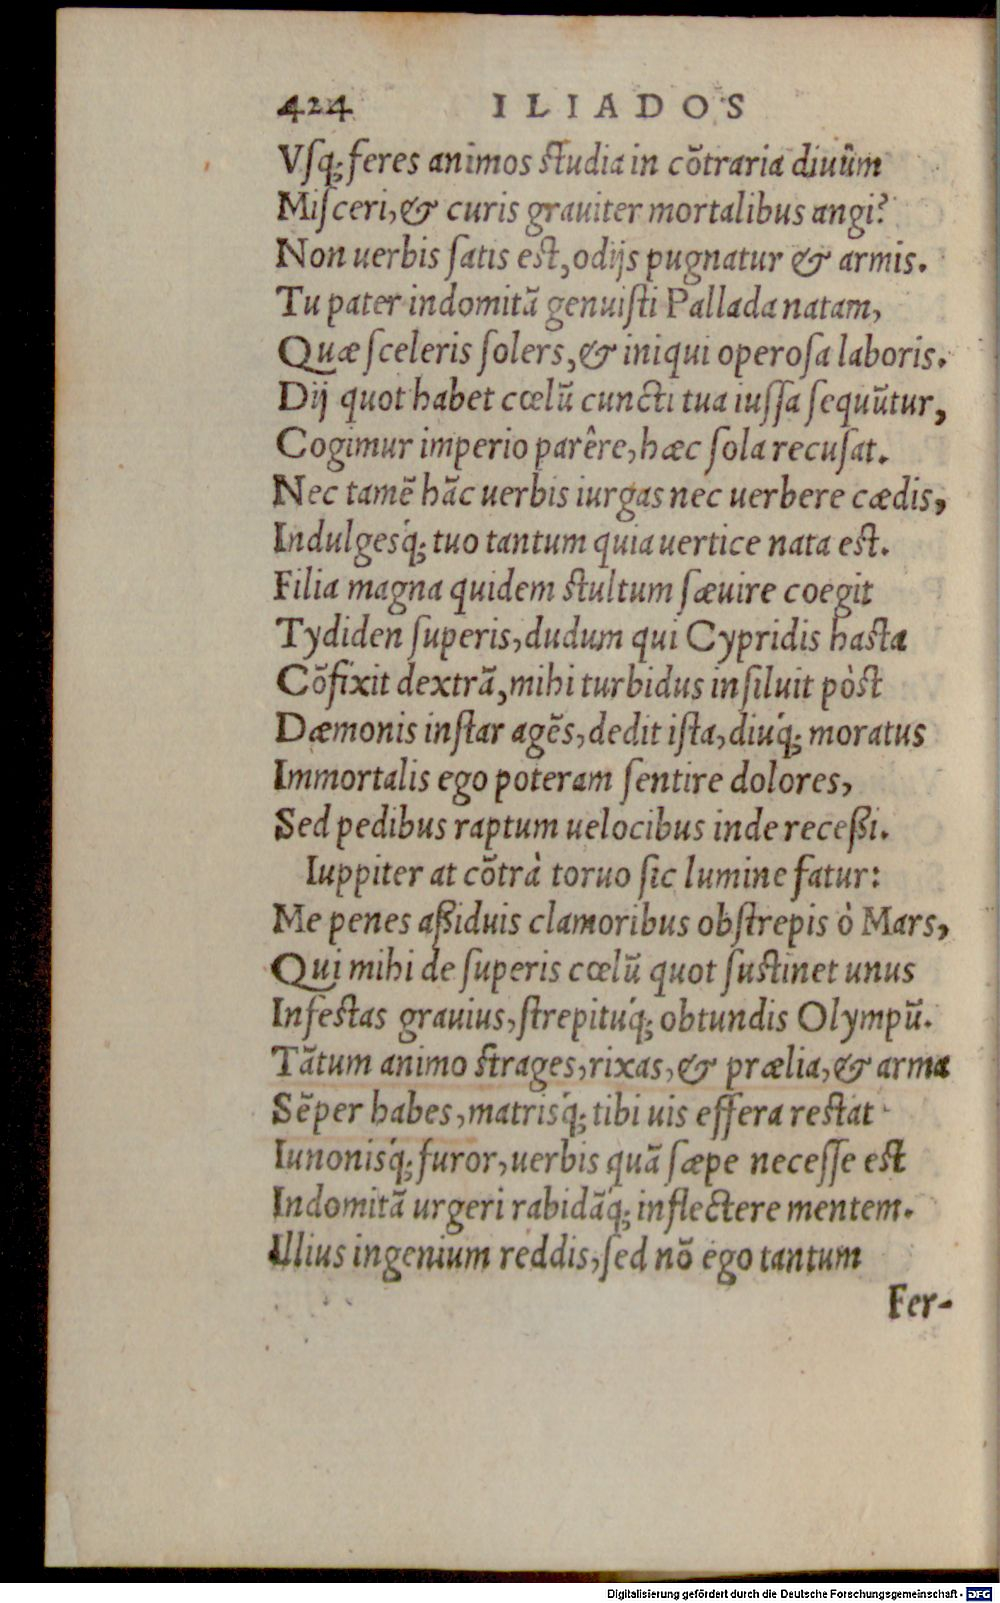 424 ILIADOS
Vſq́; feres animos ſtudia in cõtraria diuûm
Miſceri, & curis grauiter mortalibus angi?
Non uerbis ſatis eſt, odijs pugnatur & armis.
Tu pater indomitã genuiſti Pallada natam,
Quæ ſceleris ſolers, & iniqui operoſa laboris.
Dij quot habet cœlũ cuncti tua iuſſa ſequũtur,
Cogimur imperio parêre, hæc ſola recuſat.
Nec tamẽ hãc uerbis iurgas nec uerbere cædis,
Indulgesq́; tuo tantum quia uertice nata eſt.
Filia magna quidem ſtultum ſæuire coegit
Tydiden ſuperis, dudum qui Cypridis haſta
Cõfixit dextrã, mihi turbidus inſiluit pòſt
Dæmonis inſtar agẽs, dedit iſta, diuq́; moratus
Immortalis ego poteram ſentire dolores,
Sed pedibus raptum uelocibus inde receßi.
Iuppiter at cõtrà toruo ſic lumine fatur:
Me penes aßiduis clamoribus obſtrepis ò Mars,
Qui mihi de ſuperis cœlũ quot ſuſtinet unus
Infeſtas grauius, ſtrepituq́; obtundis Olympũ.
Tãtum animo ſtrages, rixas, & prælia, & arma
Sẽper habes, matrisq́; tibi uis effera reſtat
Iunonisq́; furor, uerbis quã ſæpe neceſſe eſt
Indomitã urgeri rabidãq́; inflectere mentem.
Illius ingenium reddis, ſed nõ ego tantum
Fer-
Digitalisierung gefördert durch die Deutsche Forschungsgemeinschaft - DFG